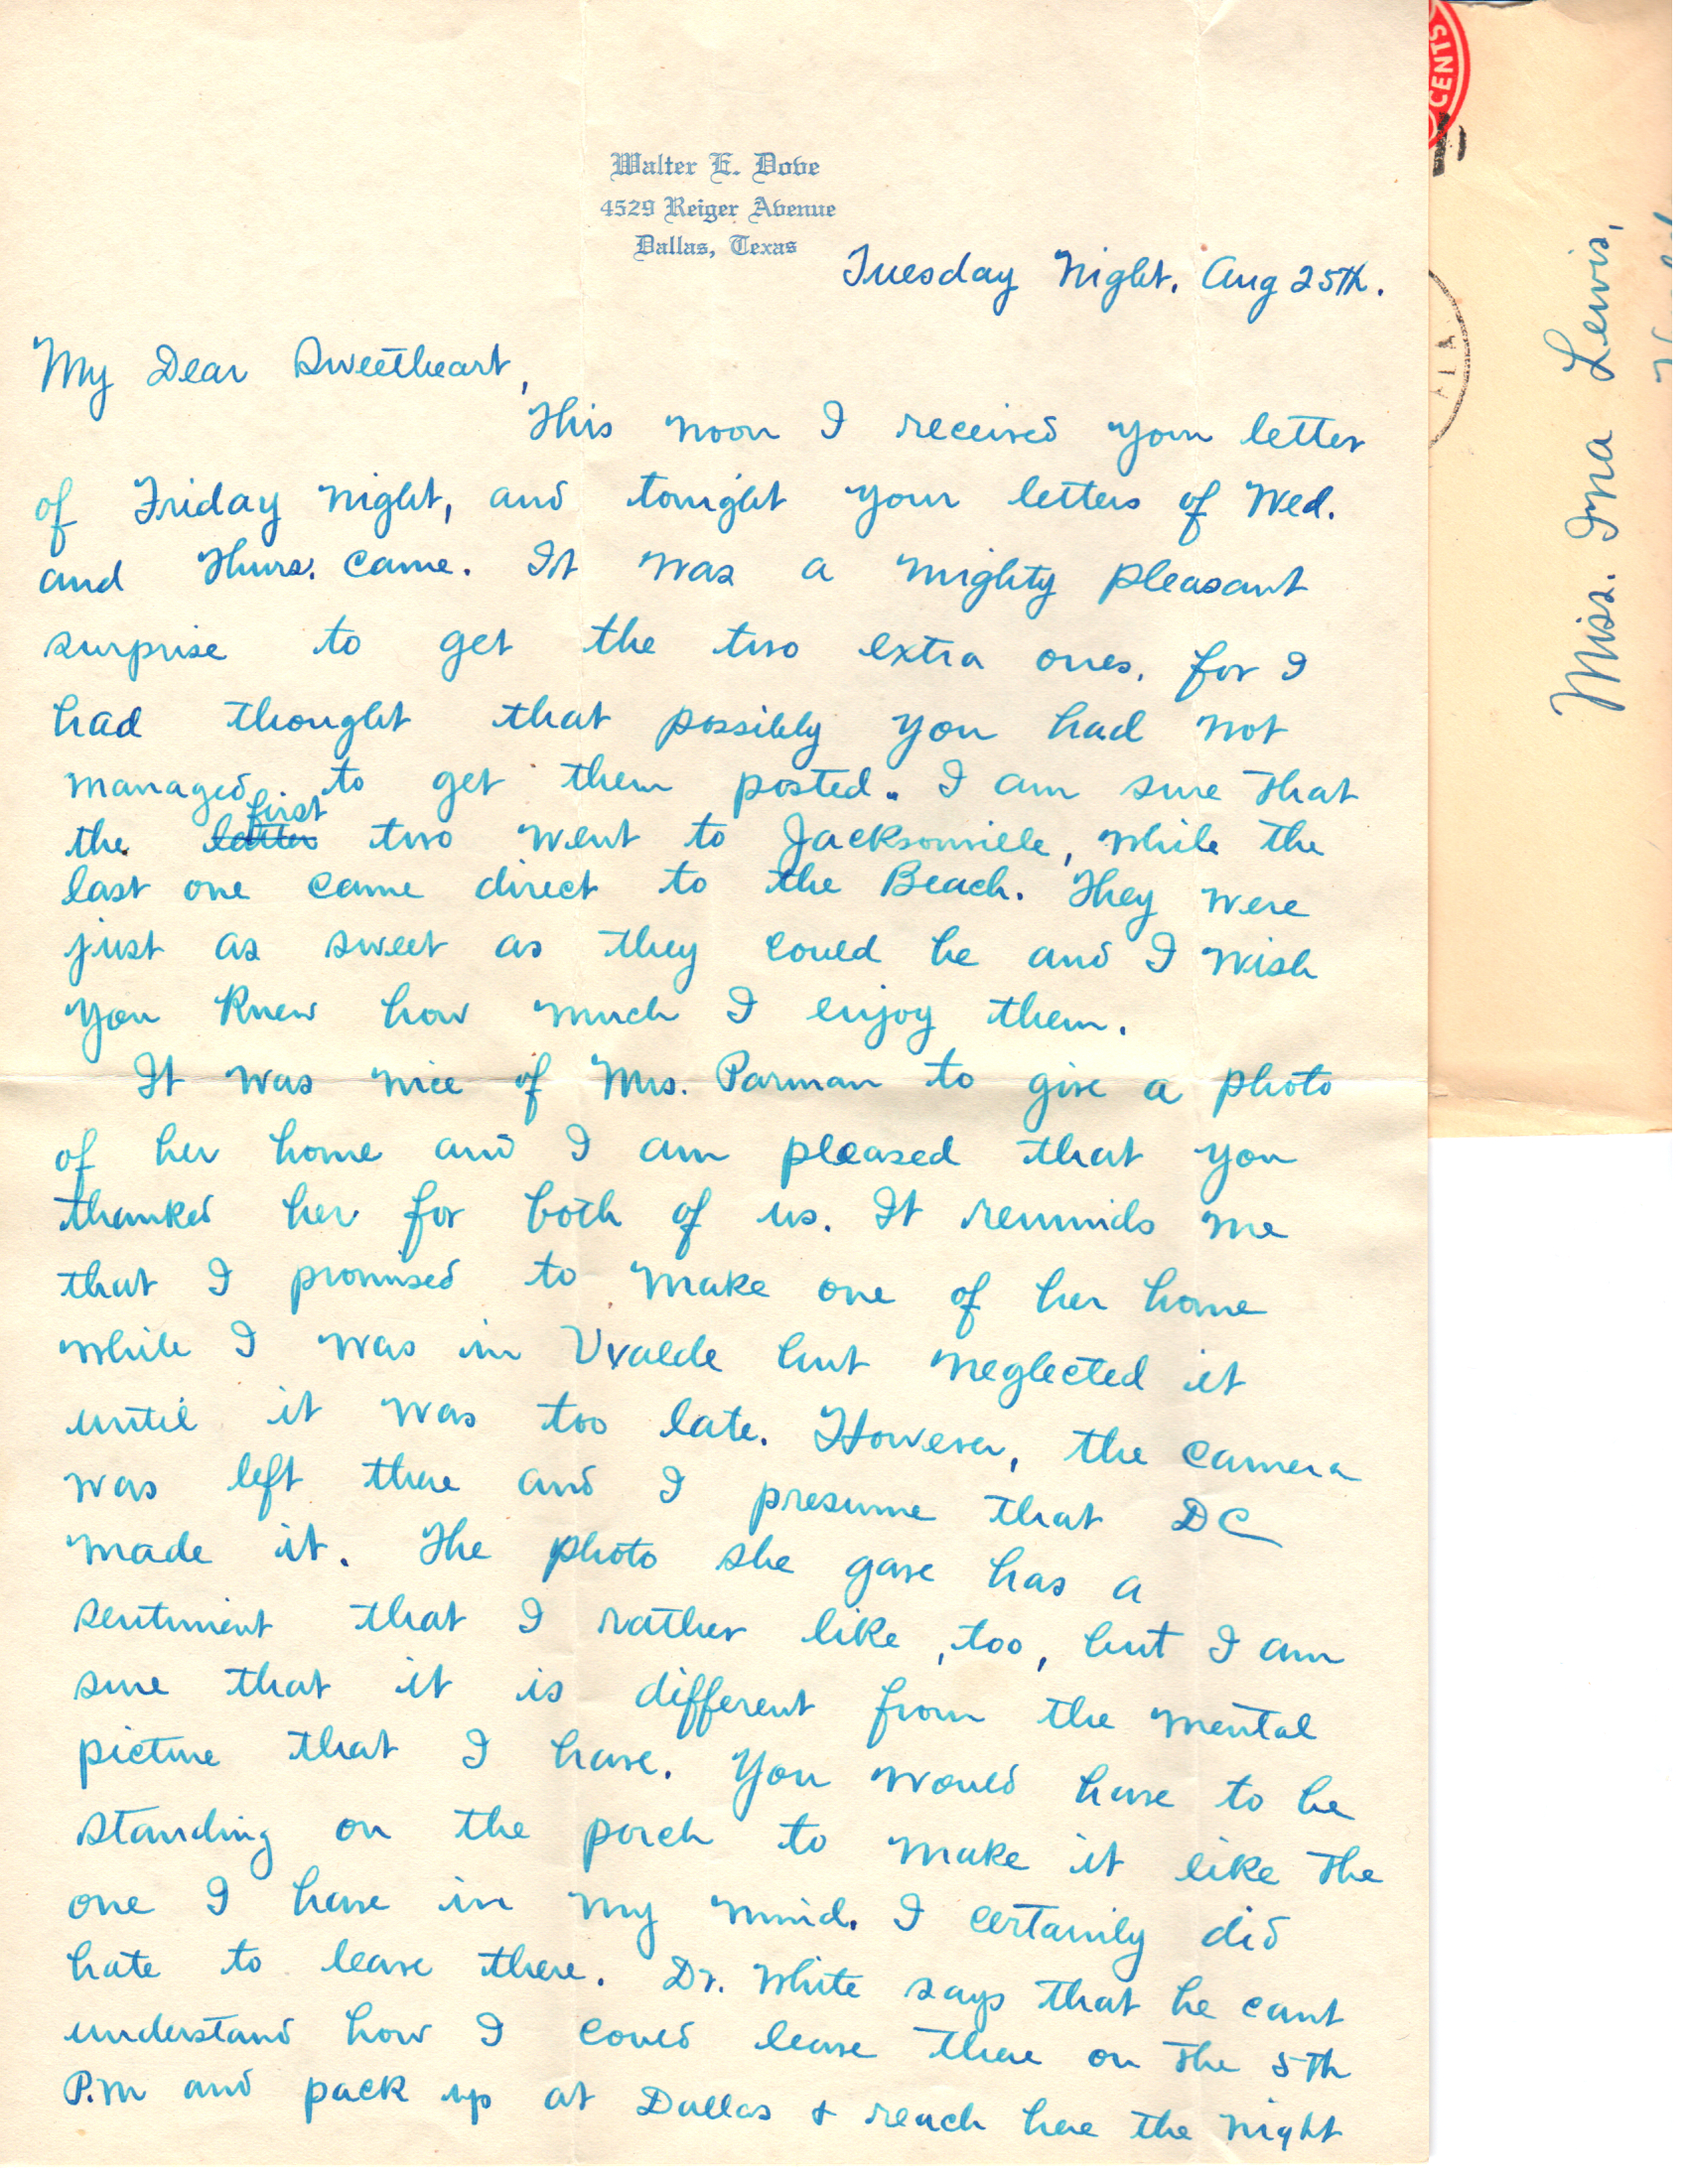 Walter E. Dove
4529 Reiger Avenue
Dallas, Texas
Tuesday Night, Aug 25th.
My Dear Sweetheart,
This noon I received your letter
of Friday night, and tonight your letters of Wed.
and Thurs. came. It was a mighty pleasant
surprise to get the two extra ones, for I
had thought that possibly you had not
managed to get them posted. I am sure that
first
the latter two went to Jacksonville, while the
last one came direct to the Beach. They were
just as sweet as they could be and I wish
you knew how much I enjoy them.
It was nice of Mrs. Parman to give a photo
of her home and I am pleased that you
thanked her for both of us. It reminds me
that I promised to make one of her home
while I was in Uvalde but neglected it
until it was too late. However, the camera
was left there and I presume that DC
made it. The photo she gave has a
sentiment that I rather like, too, but I am
sure that it is different from the mental
picture that I have. You would have to be
standing on the porch to make it like the
one I have in my mind. I certainly did
hate to leave there. Dr. White says that he cant
understand how I could leave there on the 5th
P.M and pack up at Dallas & reach here the night
CENTS
FLA
Miss. Ina Lewis,